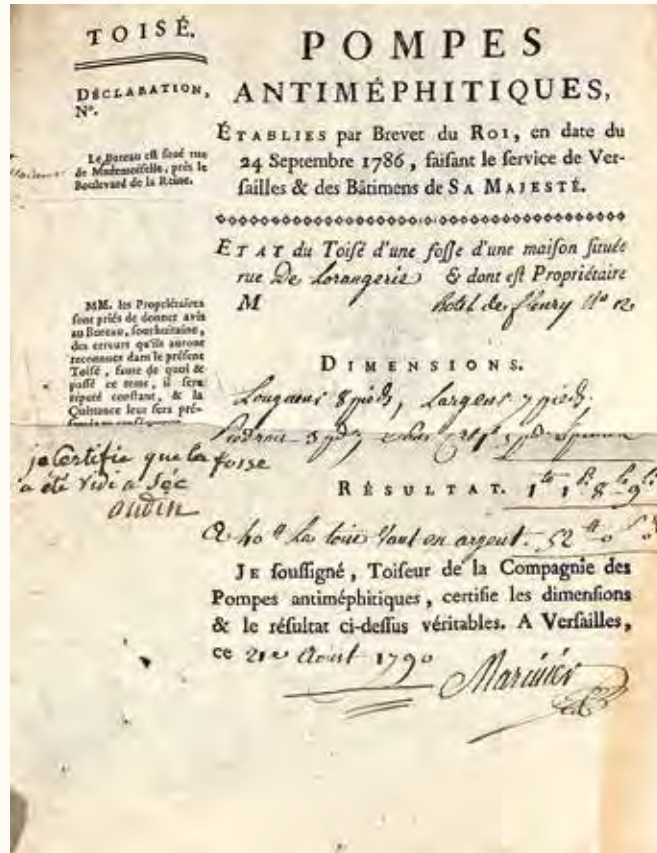 TOISÉ.
DÉCLARATION,
N°.
Le Bureau est situé rue
de Mademoiselle, près le
Boulevard de la Reine.
MM. les Propriétaires
sont priés de donner avis
au Bureau, sous huitaine,
des erreurs qu'ils auront
reconnues dans le présent
Toisé, faute de quoi &
passé ce tems, il sera
réputé constant, & la
Quittance leur sera pré-
je Certifie que la
fosse
a été vidé a Séc
audin
POMPES
ANTIMÉPHITIQUES,
ÉTABLIES par Brevet du ROI, en date du
24 Septembre 1786, faisant le service de Ver-
sailles & des Bâtimens de SA MAJESTÉ.
ETAT du Toisé d'une fosse d'une maison située
rue De Lorangerie & dont est Propriétaire
M hotel de fleury No 12
DIMENSIONS.
Longueur 8 pieds, Largeur 7 pieds.
RÉSULTAT. 1 1 8 9
a 40 La toise Vaut en argent. 52
JE soussigné, Toiseur de la Compagnie des
Pompes antiméphitiques, certifie les dimensions
& le résultat ci-dessus véritables. A Versailles,
ce 21e Aout 1790